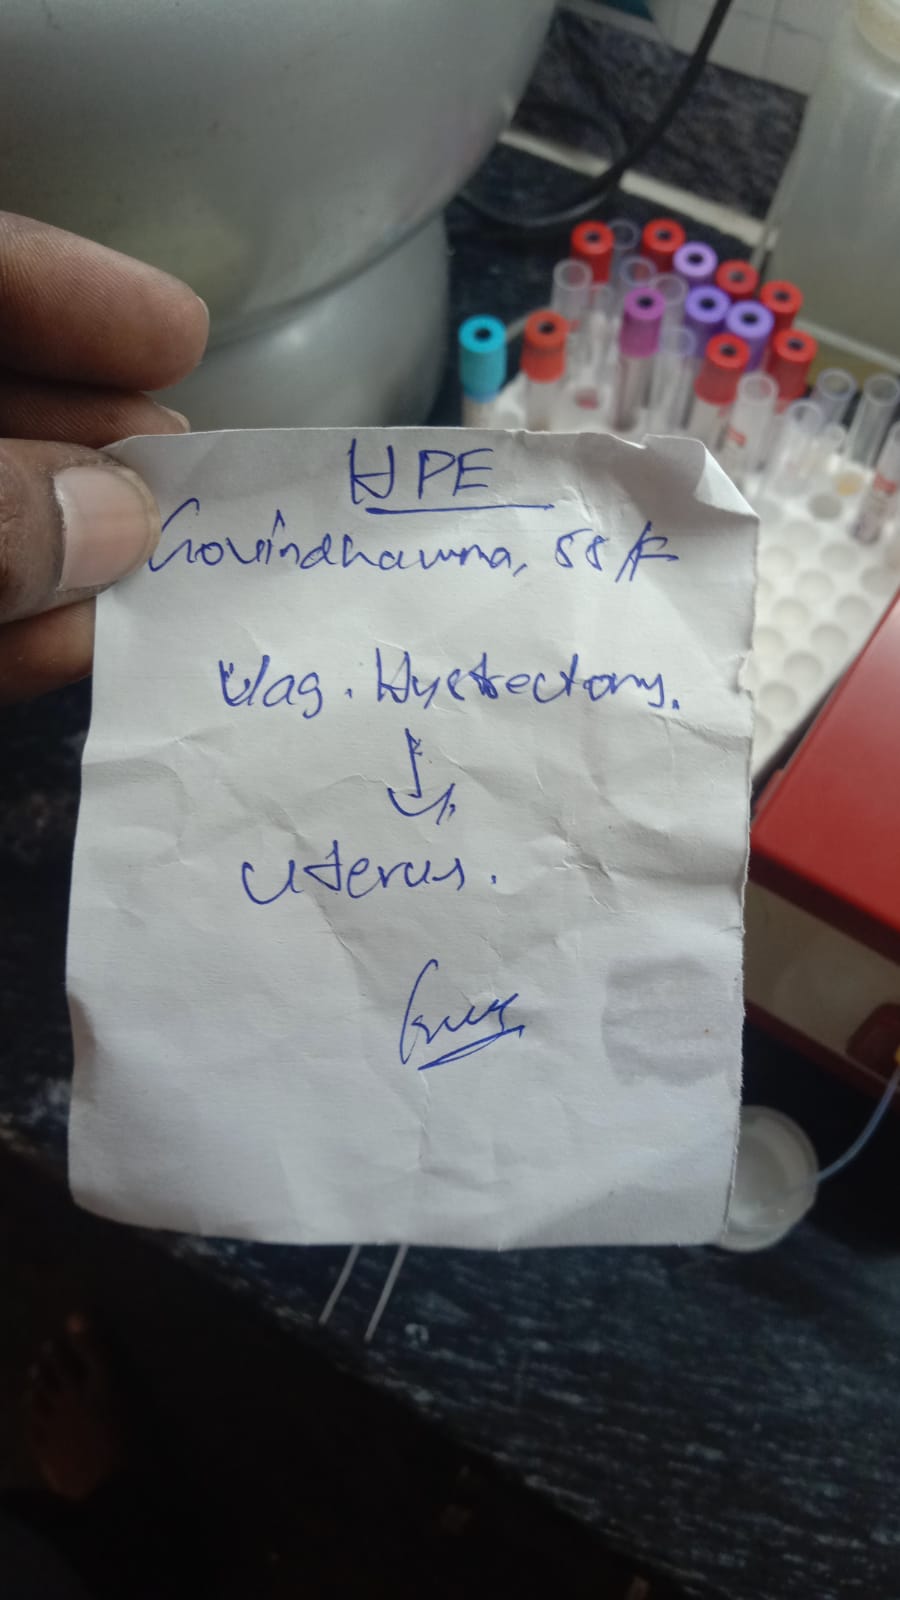 HPE
Govindhamma, 58/F
Vag. Hystrectomy.
Uterus.